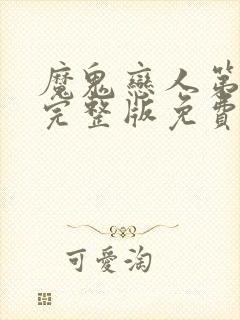 魔鬼戀人第
完整版免費
可愛淘